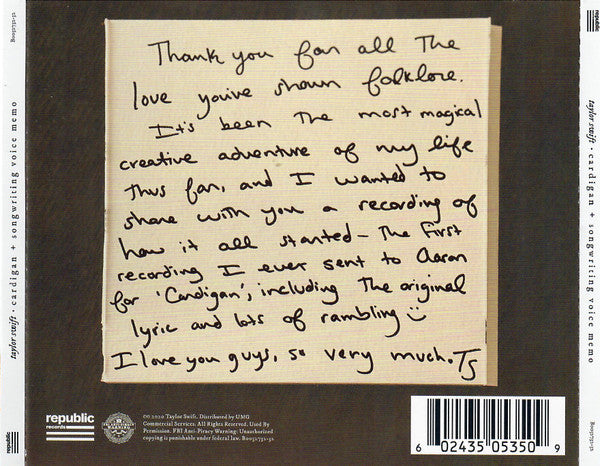 Thank you for all the
love you've shown folklore.
It's been the most magical
creative adventure of my life
thus far, and I wanted to
share with you a recording of
how it all started - the first
recording I ever sent to Aaron
for 'Cardigan', including the original
lyric and lots of rambling
I love you guys, so very much. TS
taylor swift · cardigan + songwriting voice memo
taylor swift · cardigan + songwriting voice memo
republic
records
republic
republic
©℗ 2020 Taylor Swift. Distributed by UMG
Commercial Services. All Rights Reserved. Used By
Permission. FBI Anti-Piracy Warning: Unauthorized
copying is punishable under federal law. B0032731-32
6 02435 05350 9